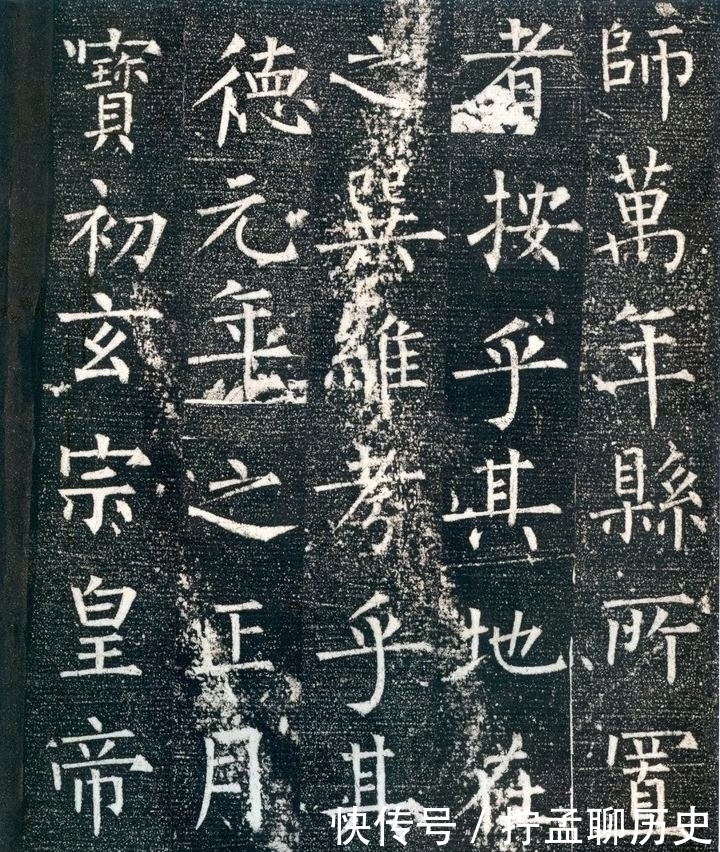 師萬年縣所置
者按乎其地在
之巽維考乎其
德元年之正月
寶初玄宗皇帝
快传号 / 拧孟聊历史